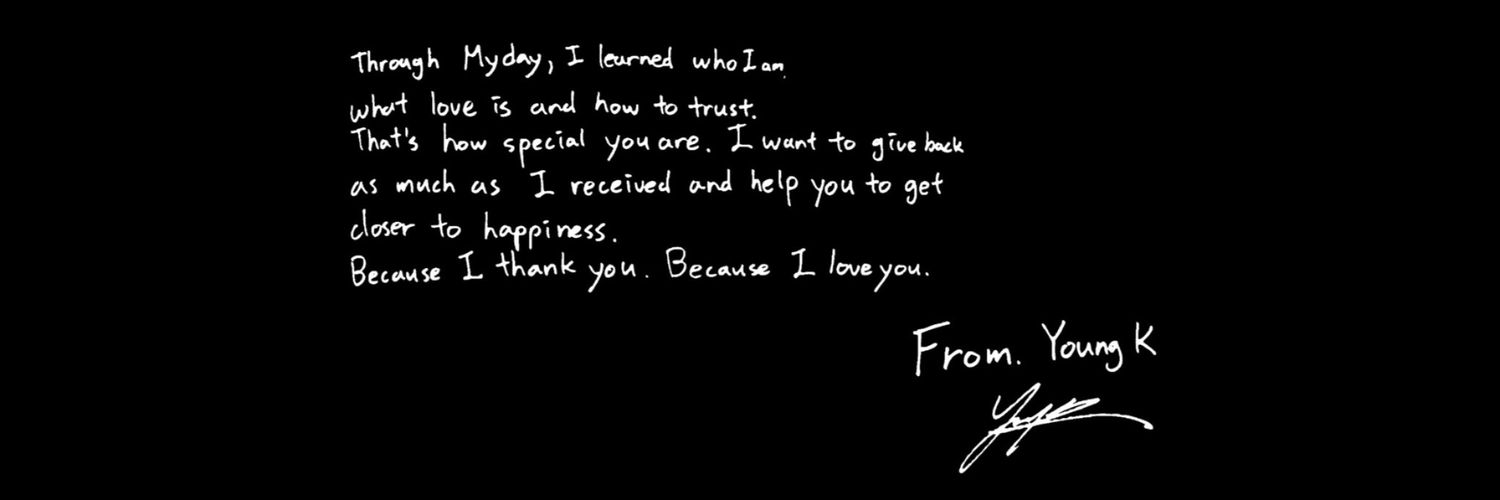 Through Myday, I learned who I am.
what love is and how to trust.
That's how special you are. I want to give back
as much as I received and help you to get
closer to happiness.
Because I thank you. Because I love you.
From. Young K